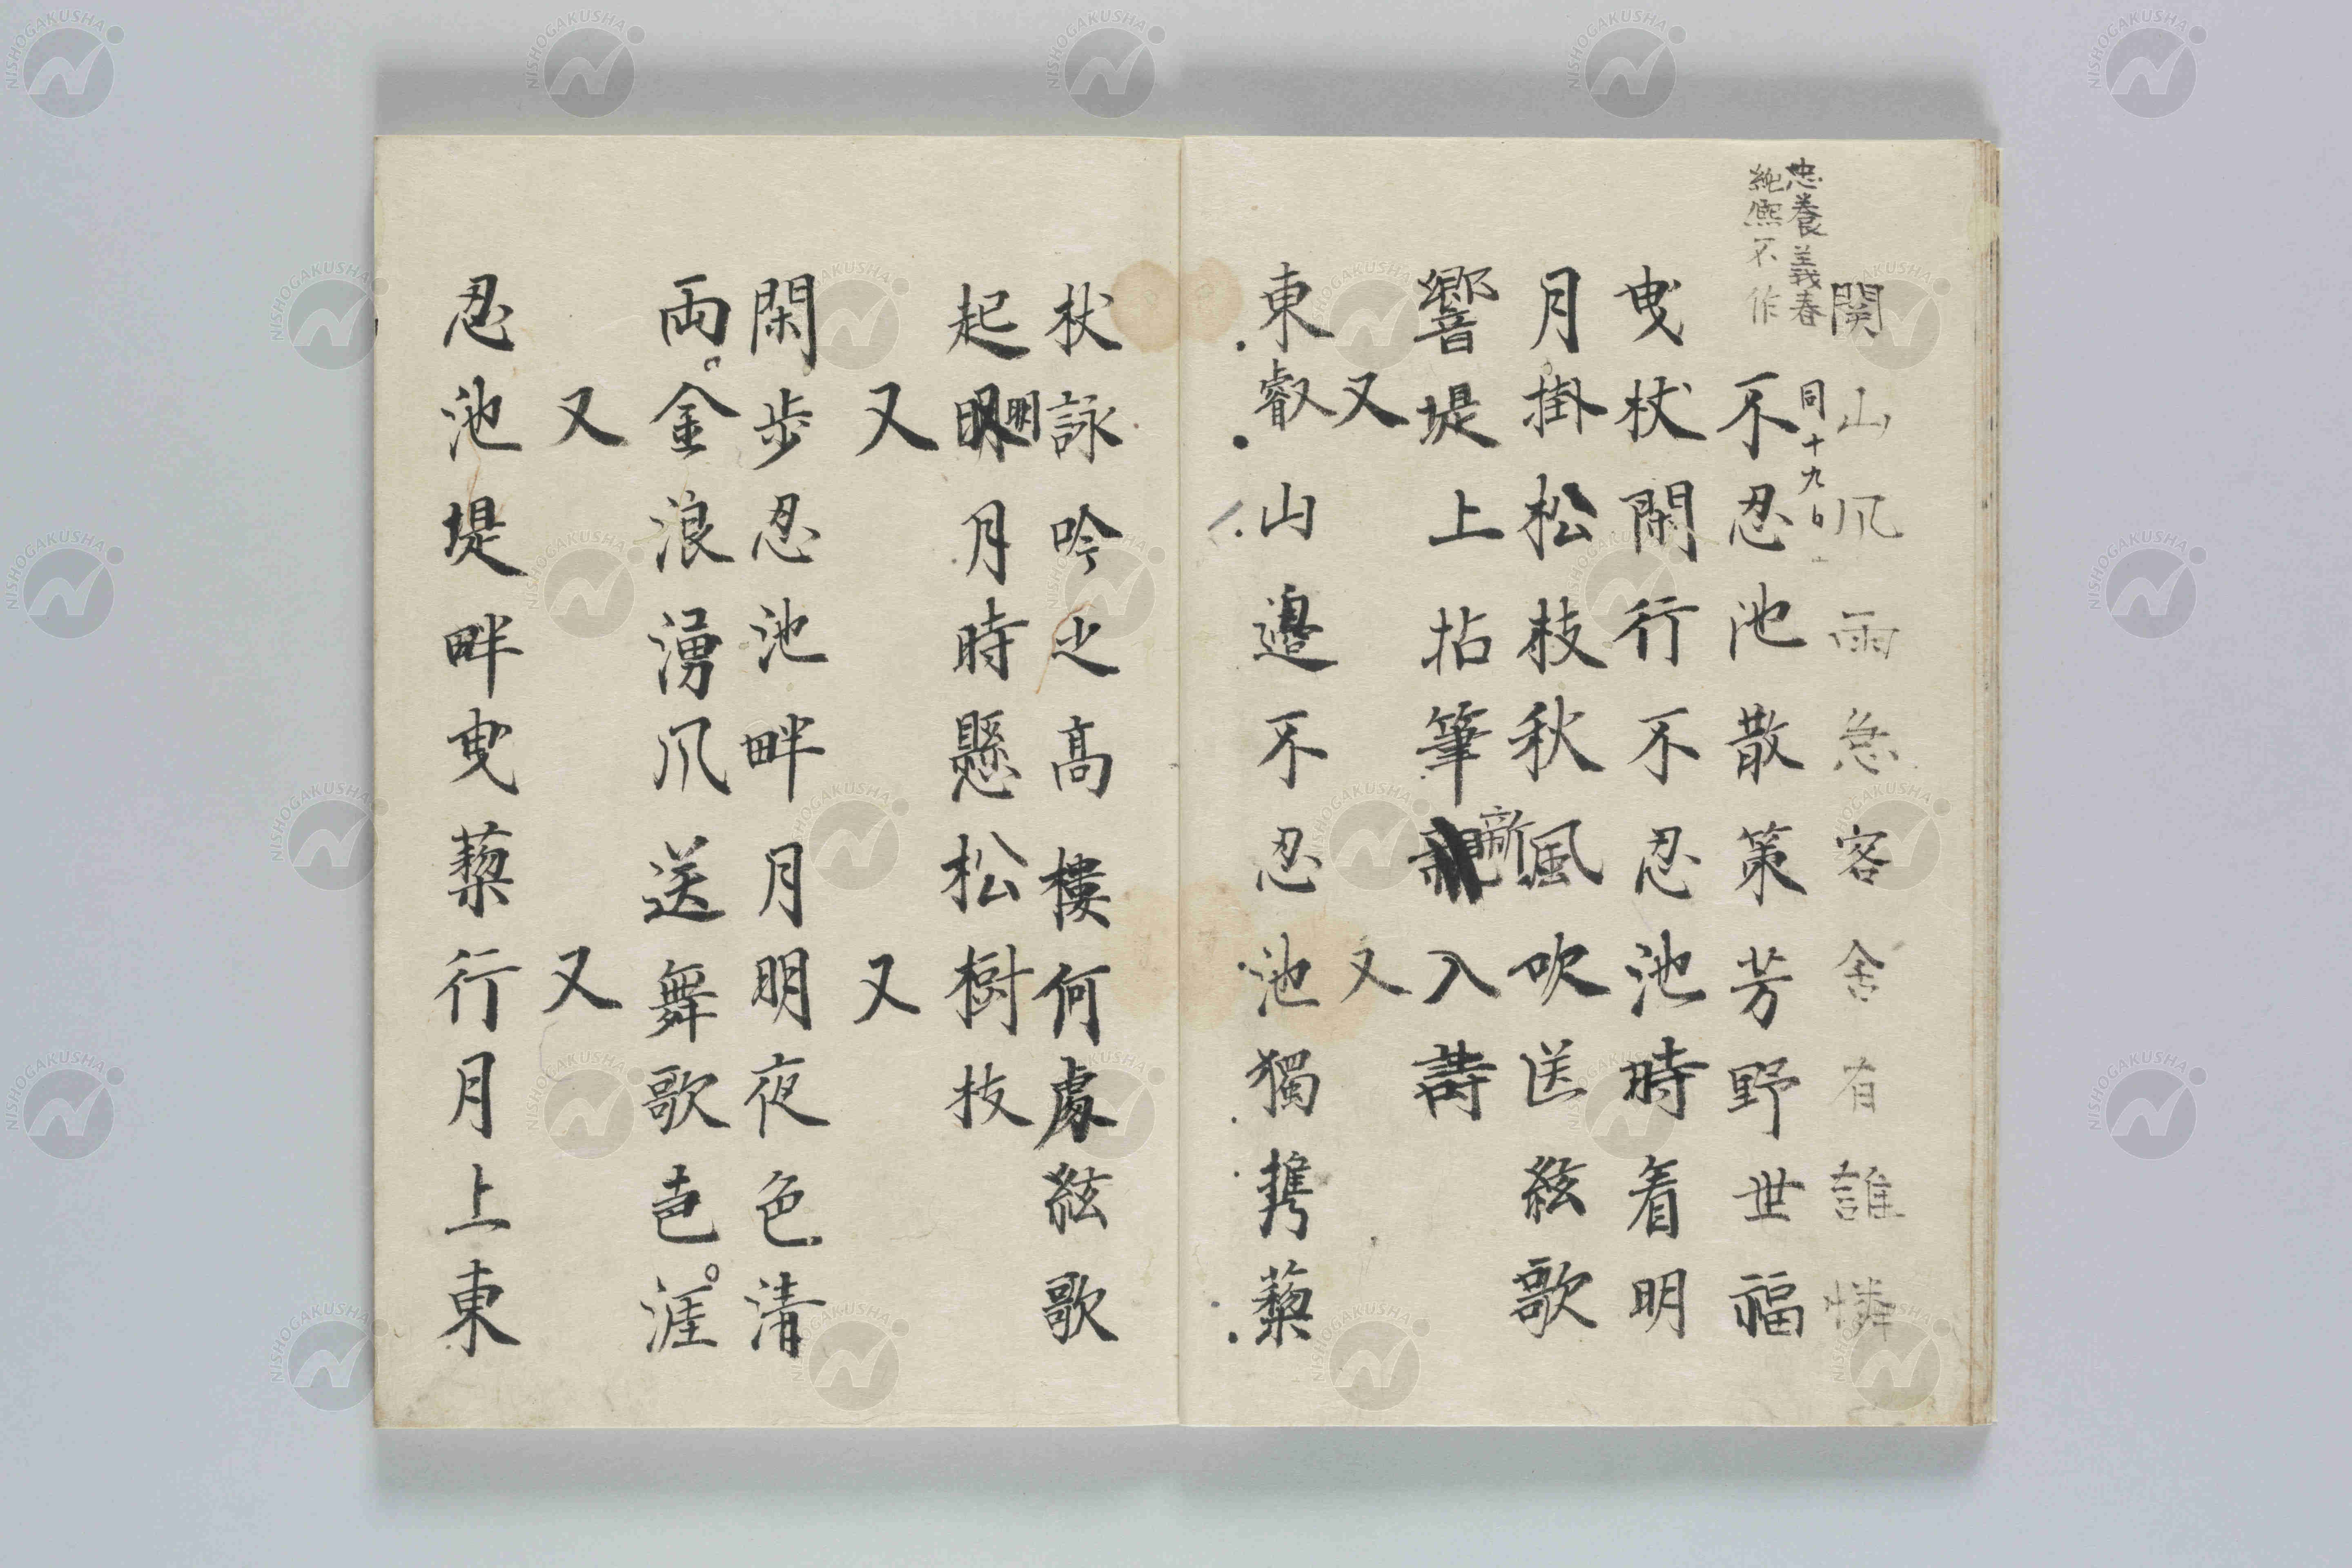 関山爪雨急客舍有誰憐
忠養義春
純熙不作
同十九日
不忍池散策芳野世福
曳杖閑行不忍池時看明
月掛松枝秋風吹送絃歌
響堤上拈筆新入詩
又 又
東叡山邉不忍池獨携藜
杖詠吟之高樓何處絃歌
起明月時懸松樹枝
又 又
閑步忍池畔月明夜色清
両金浪湧爪送舞歌声涯
又 又
忍池堤畔曳藜行月上東
NISHOGAKUSHA